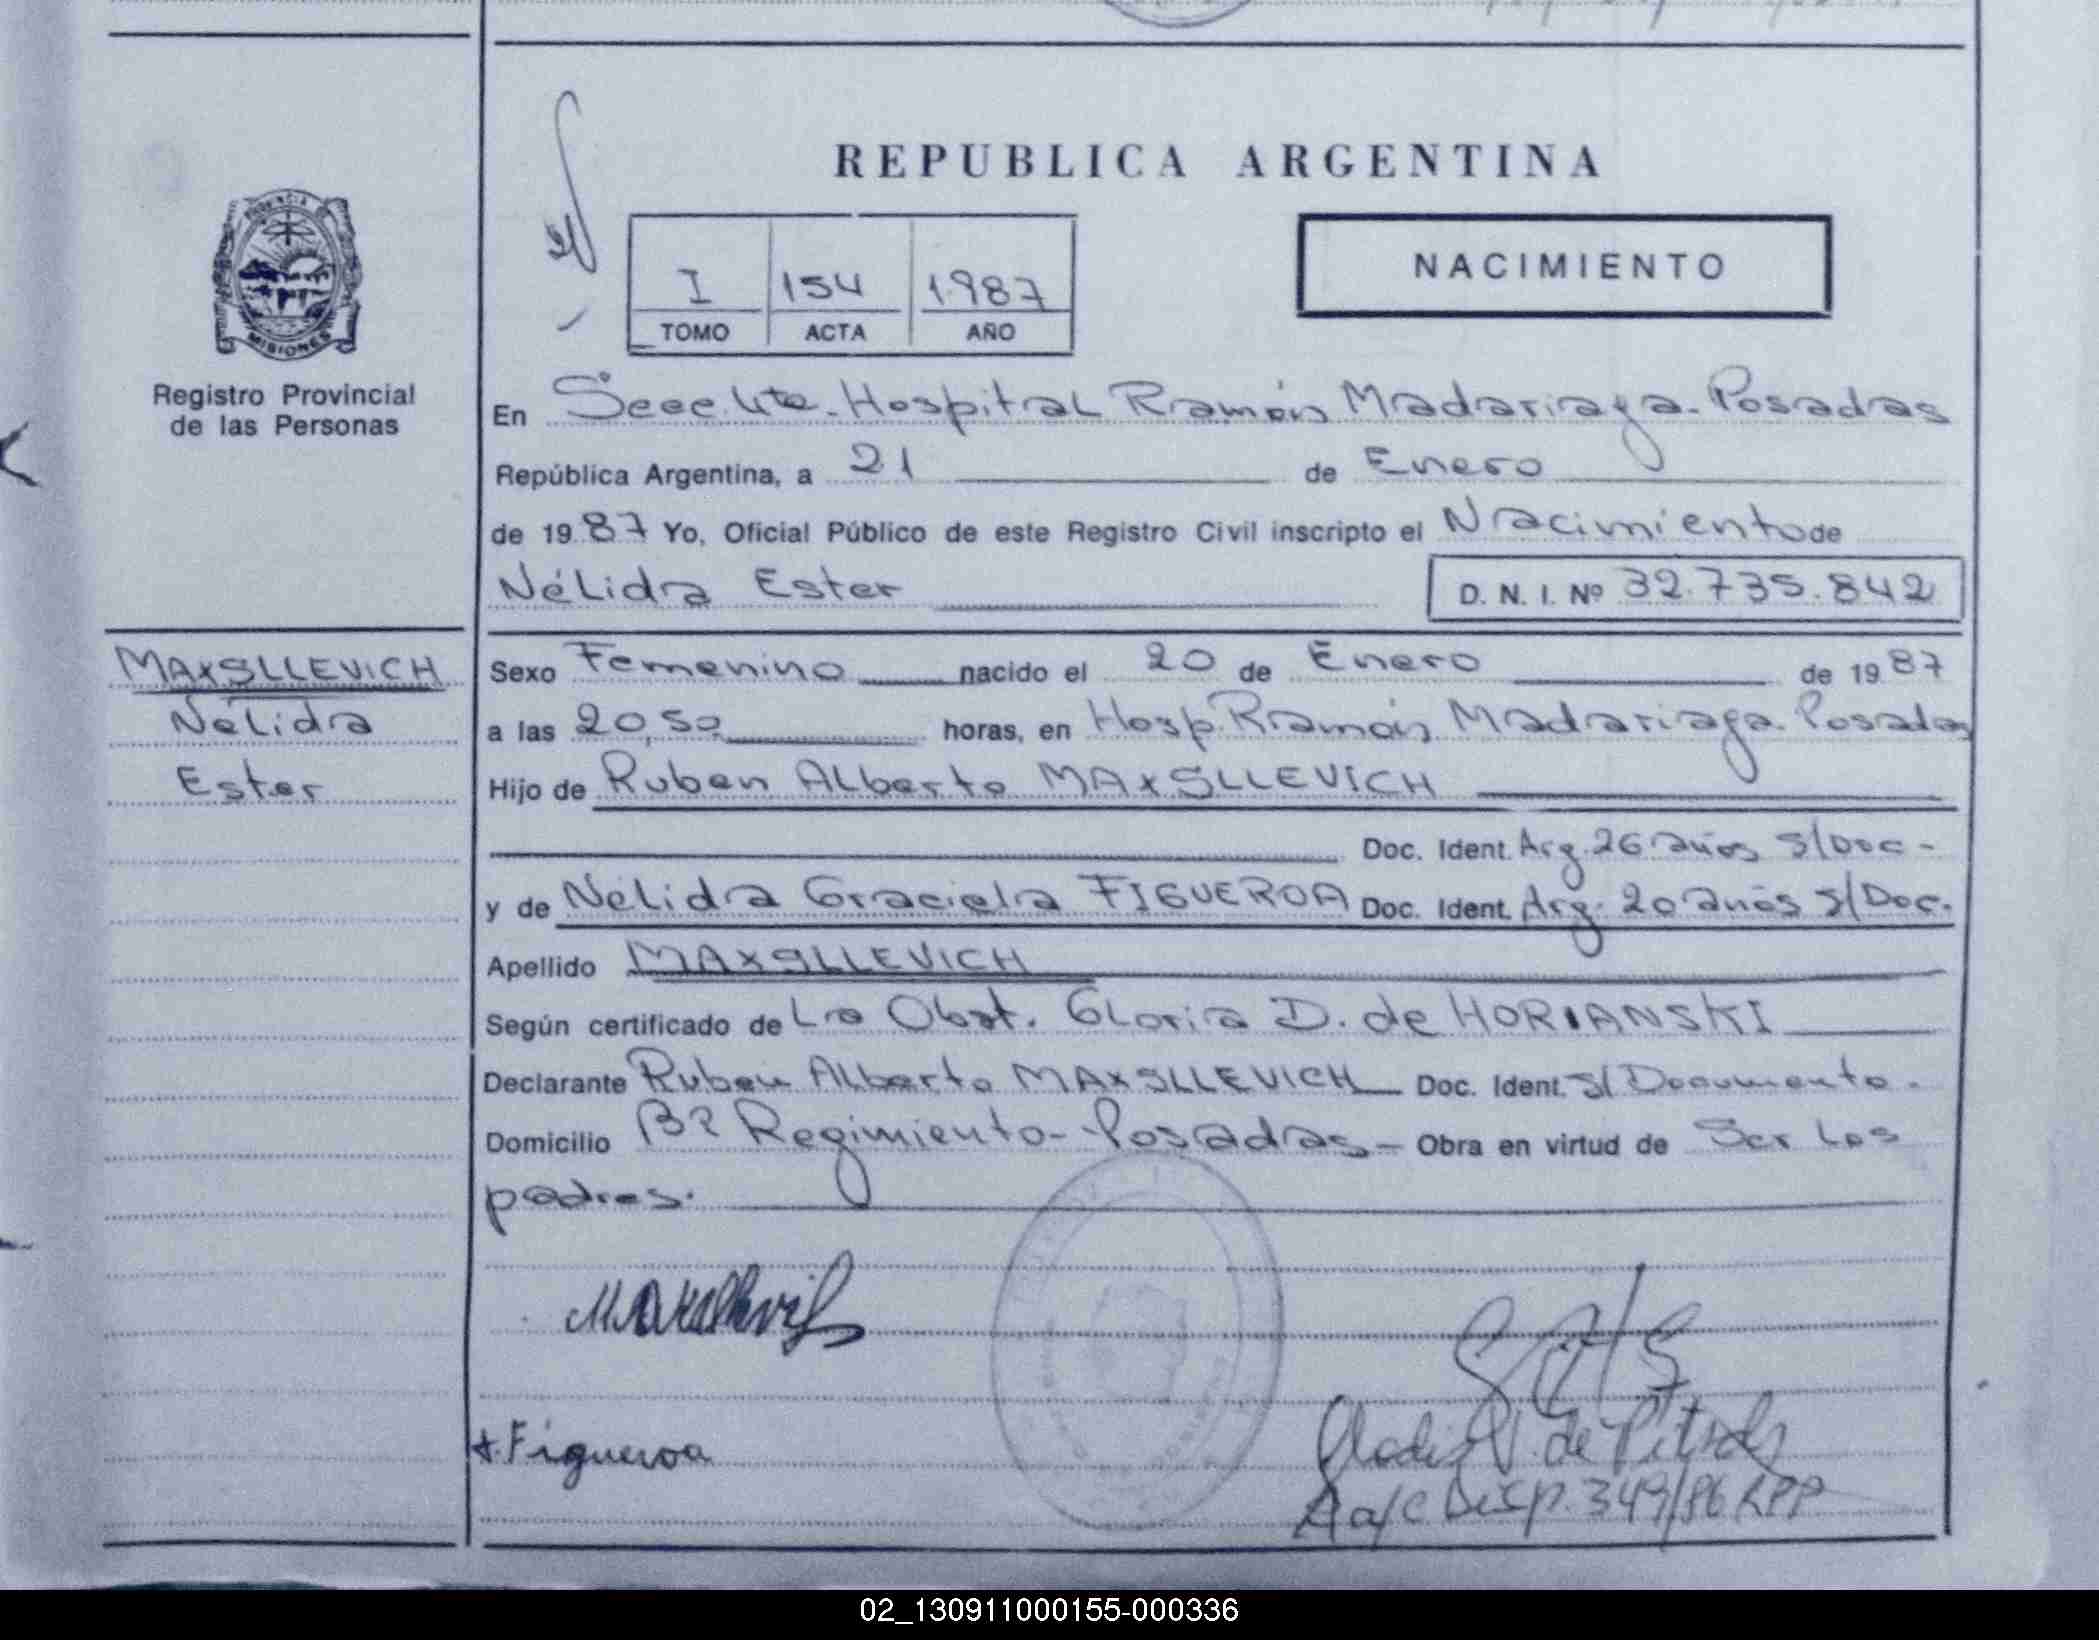 REPUBLICA ARGENTINA
PROVINCIA DE
MISIONES
Registro Provincial
de las Personas
I 154 1987
TOMO ACTA AÑO
NACIMIENTO
En Secc. 4ta. Hospital Ramón Madariaga - Posadas
República Argentina, a 21 de Enero
de 1987 Yo, Oficial Público de este Registro Civil inscripto el Nacimiento de
Nélida Ester D. N. I. Nº 32.735.842
MAXSLLEVICH
Nélida
Ester
Sexo Femenino nacido el 20 de Enero de 1987
a las 20,50 horas, en Hosp. Ramón Madariaga. Posadas
Hijo de Ruben Alberto MAXSLLEVICH
Doc. Ident. Arg. 26 años S/Doc-
y de Nélida Graciela FIGUEROA Doc. Ident. Arg. 20 años S/Doc.
Apellido MAXSLLEVICH
Según certificado de La Obst. Gloria D. de HORIANSKI
Declarante Ruben Alberto MAXSLLEVICH Doc. Ident. S/Documento.
Domicilio Bº Regimiento - Posadas - Obra en virtud de Ser los
padres.
+ Figueroa
de
A a/c Disp. 349/86 RPP
02_130911000155-000336